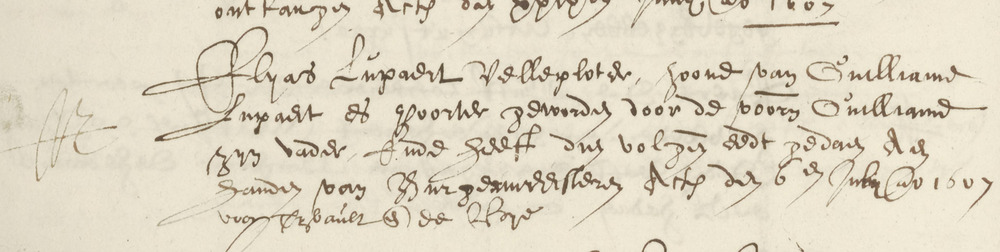 ontfangen Actu den xxixen Juny ao 1607
Elyas Lupaert Velleploter, soone van Guilliame
Lupaert es Poorter geworden door de voorn Guilliame
zyn vader, Ende heeft den volgen eedt gedaen Aen
handen van Burgermeesteren Actu den 6en July ao 1607
de Roye